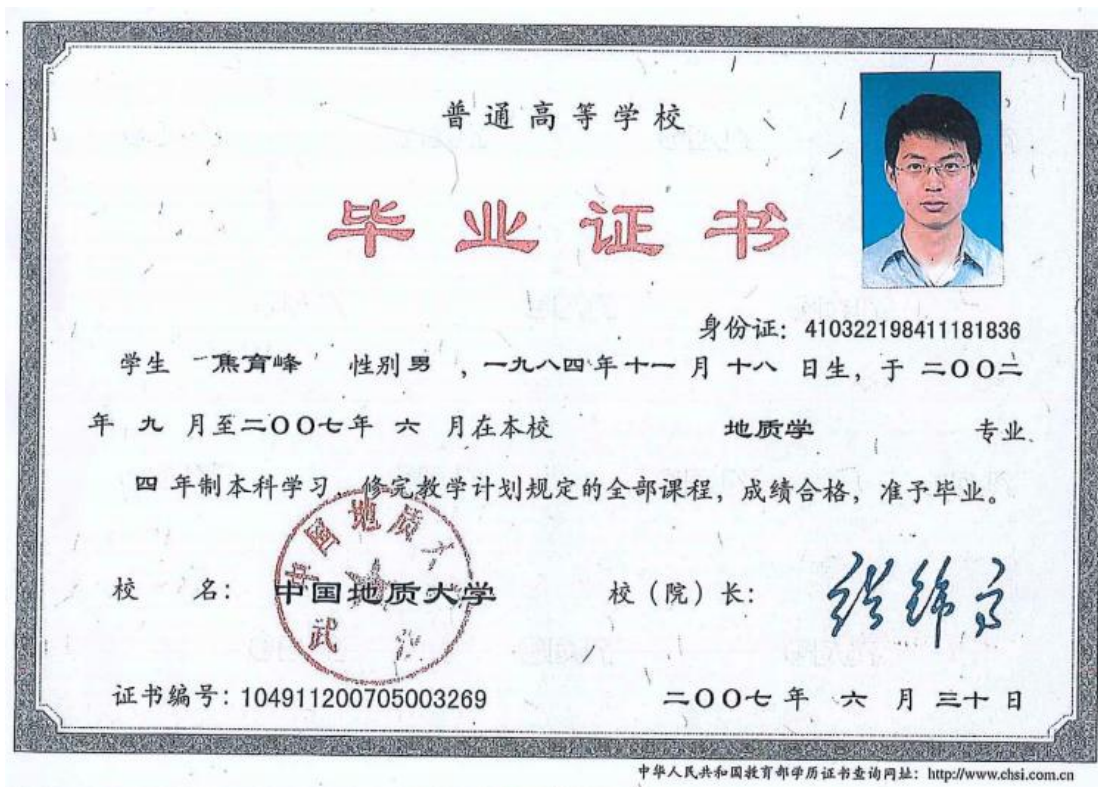 普通高等学校
毕业证书
身份证：410322198411181836
学生 焦育峰 性别 男 ，一九八四年十一月十八日生，于二〇〇二
年九月至二〇〇七年六月在本校 地质学 专业
四年制本科学习，修完教学计划规定的全部课程，成绩合格，准予毕业。
中国地质大学
武汉
校 名：中国地质大学 校（院）长：
证书编号：104911200705003269 二〇〇七年六月三十日
中华人民共和国教育部学历证书查询网址：http://www.chsi.com.cn